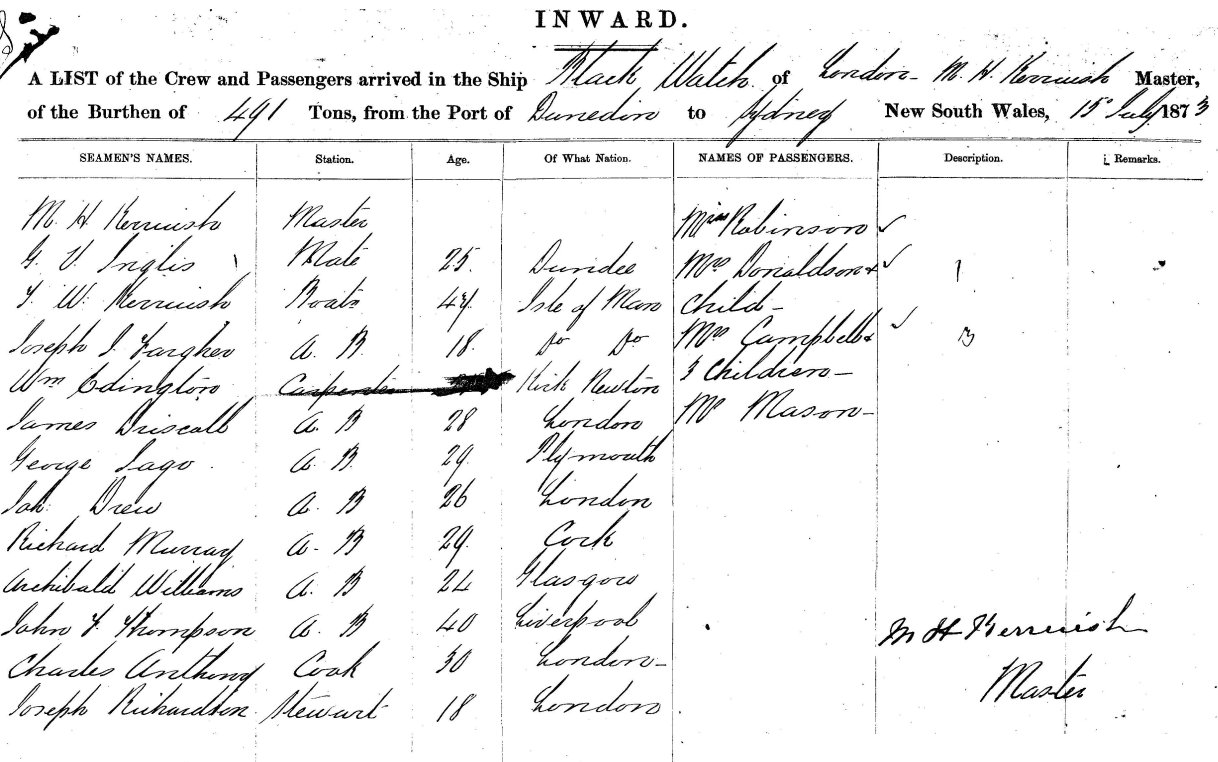 INWARD.
A LIST of the Crew and Passengers arrived in the Ship Black Watch of London - M. H. Kerruish Master,
of the Burthen of 491 Tons, from the Port of Dunedin to Sydney New South Wales, 15 July 1873
SEAMEN'S NAMES. Station. Age. Of What Nation. NAMES OF PASSENGERS. Description. Remarks.
M. H Kerruish Master Miss Robinson ✓
G. V Inglis Mate 25. Dundee Mrs Donaldson & ✓ 1
W. Kerruish Boats Isle of Man Child -
Joseph J. Fargher A. B 18. Do Do Mrs Campbell & ✓ 3
Wm Edington Carpenter Kirk Newton 3 Children -
James Driscall A. B 28 London Mr Mason -
George Jago A. B. 29. Plymouth
Drew A. B 26 London
Richard Murray A. B 29. Cork
Archibald Williams A. B 24 Glasgow
John F Thompson A. B 40 Liverpool M H Kerruish
Charles Anthony Cook 30 London - Master
Joseph Richardson Stewart 18 London